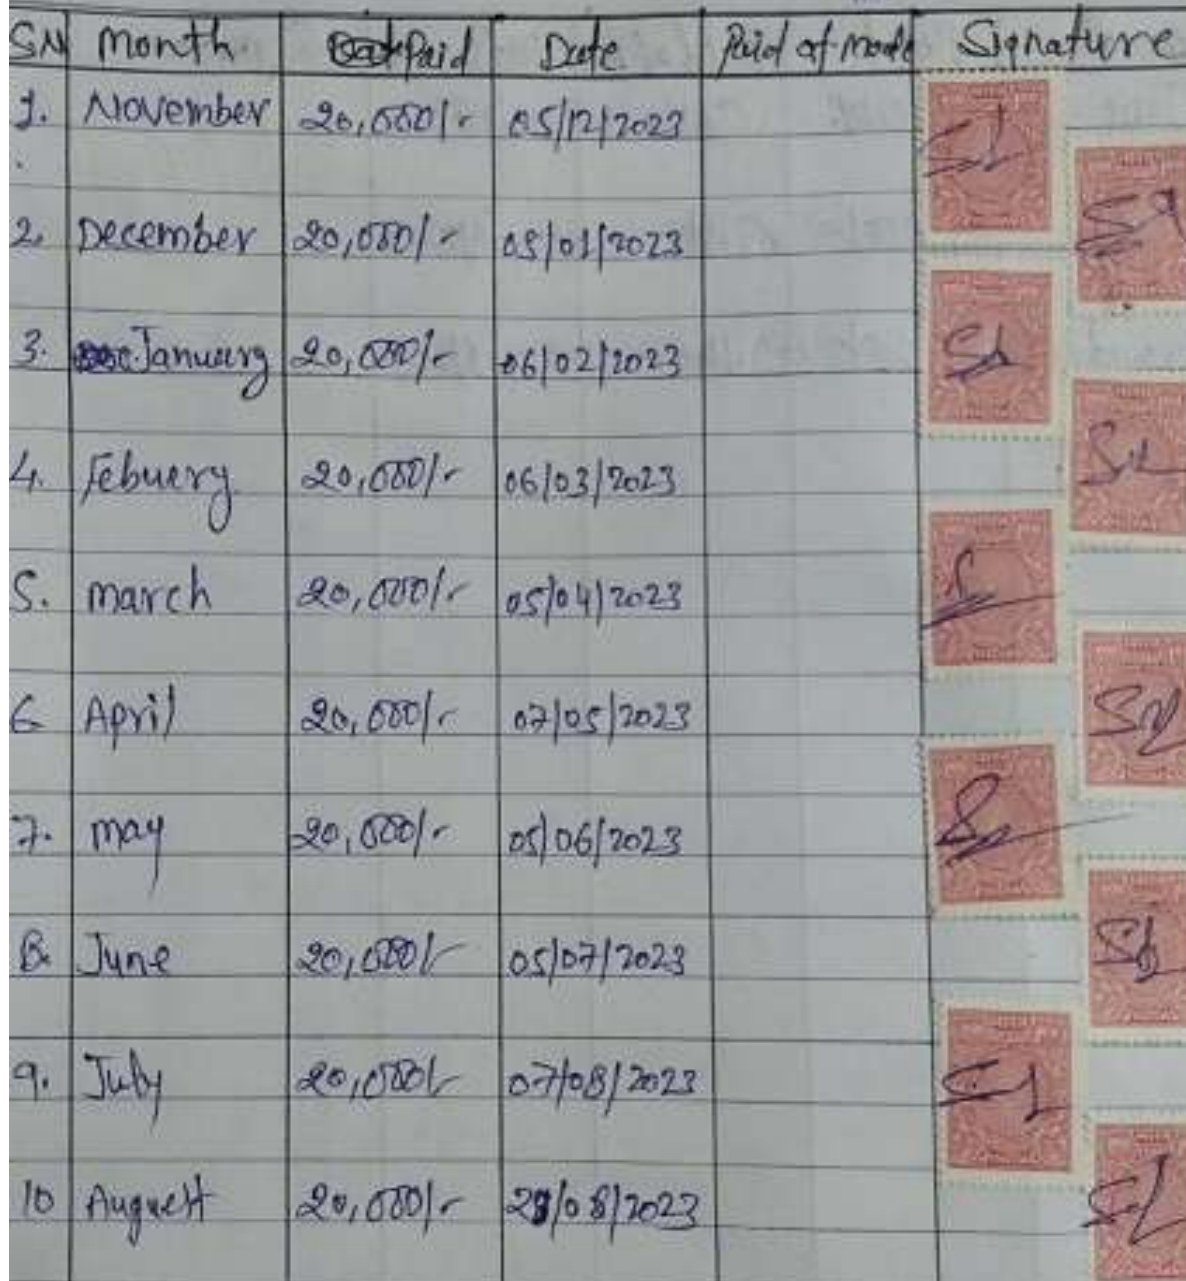 SN Month Paid Date Paid of mode Signature
1. November 20,000/- 05/12/2023
2. December 20,000/- 05/01/2023
3. January 20,000/- 06/02/2023
4. Febuery 20,000/- 06/03/2023
5. march 20,000/- 05/04/2023
6 April 20,000/- 07/05/2023
7. may 20,000/- 05/06/2023
8. June 20,000/- 05/07/2023
9. July 20,000/- 07/08/2023
10 August 20,000/- 29/08/2023